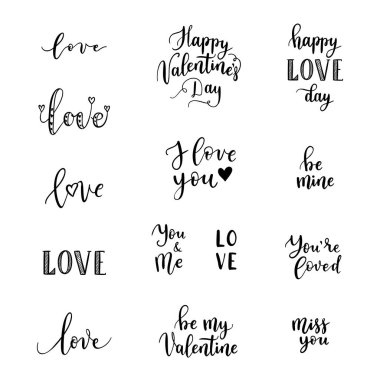 love
love
love
LOVE
love
Happy
Valentine's
Day
I love
you
You
&
Me
LO
VE
be my
Valentine
happy
LOVE
day
be
mine
You're
loved
miss
you